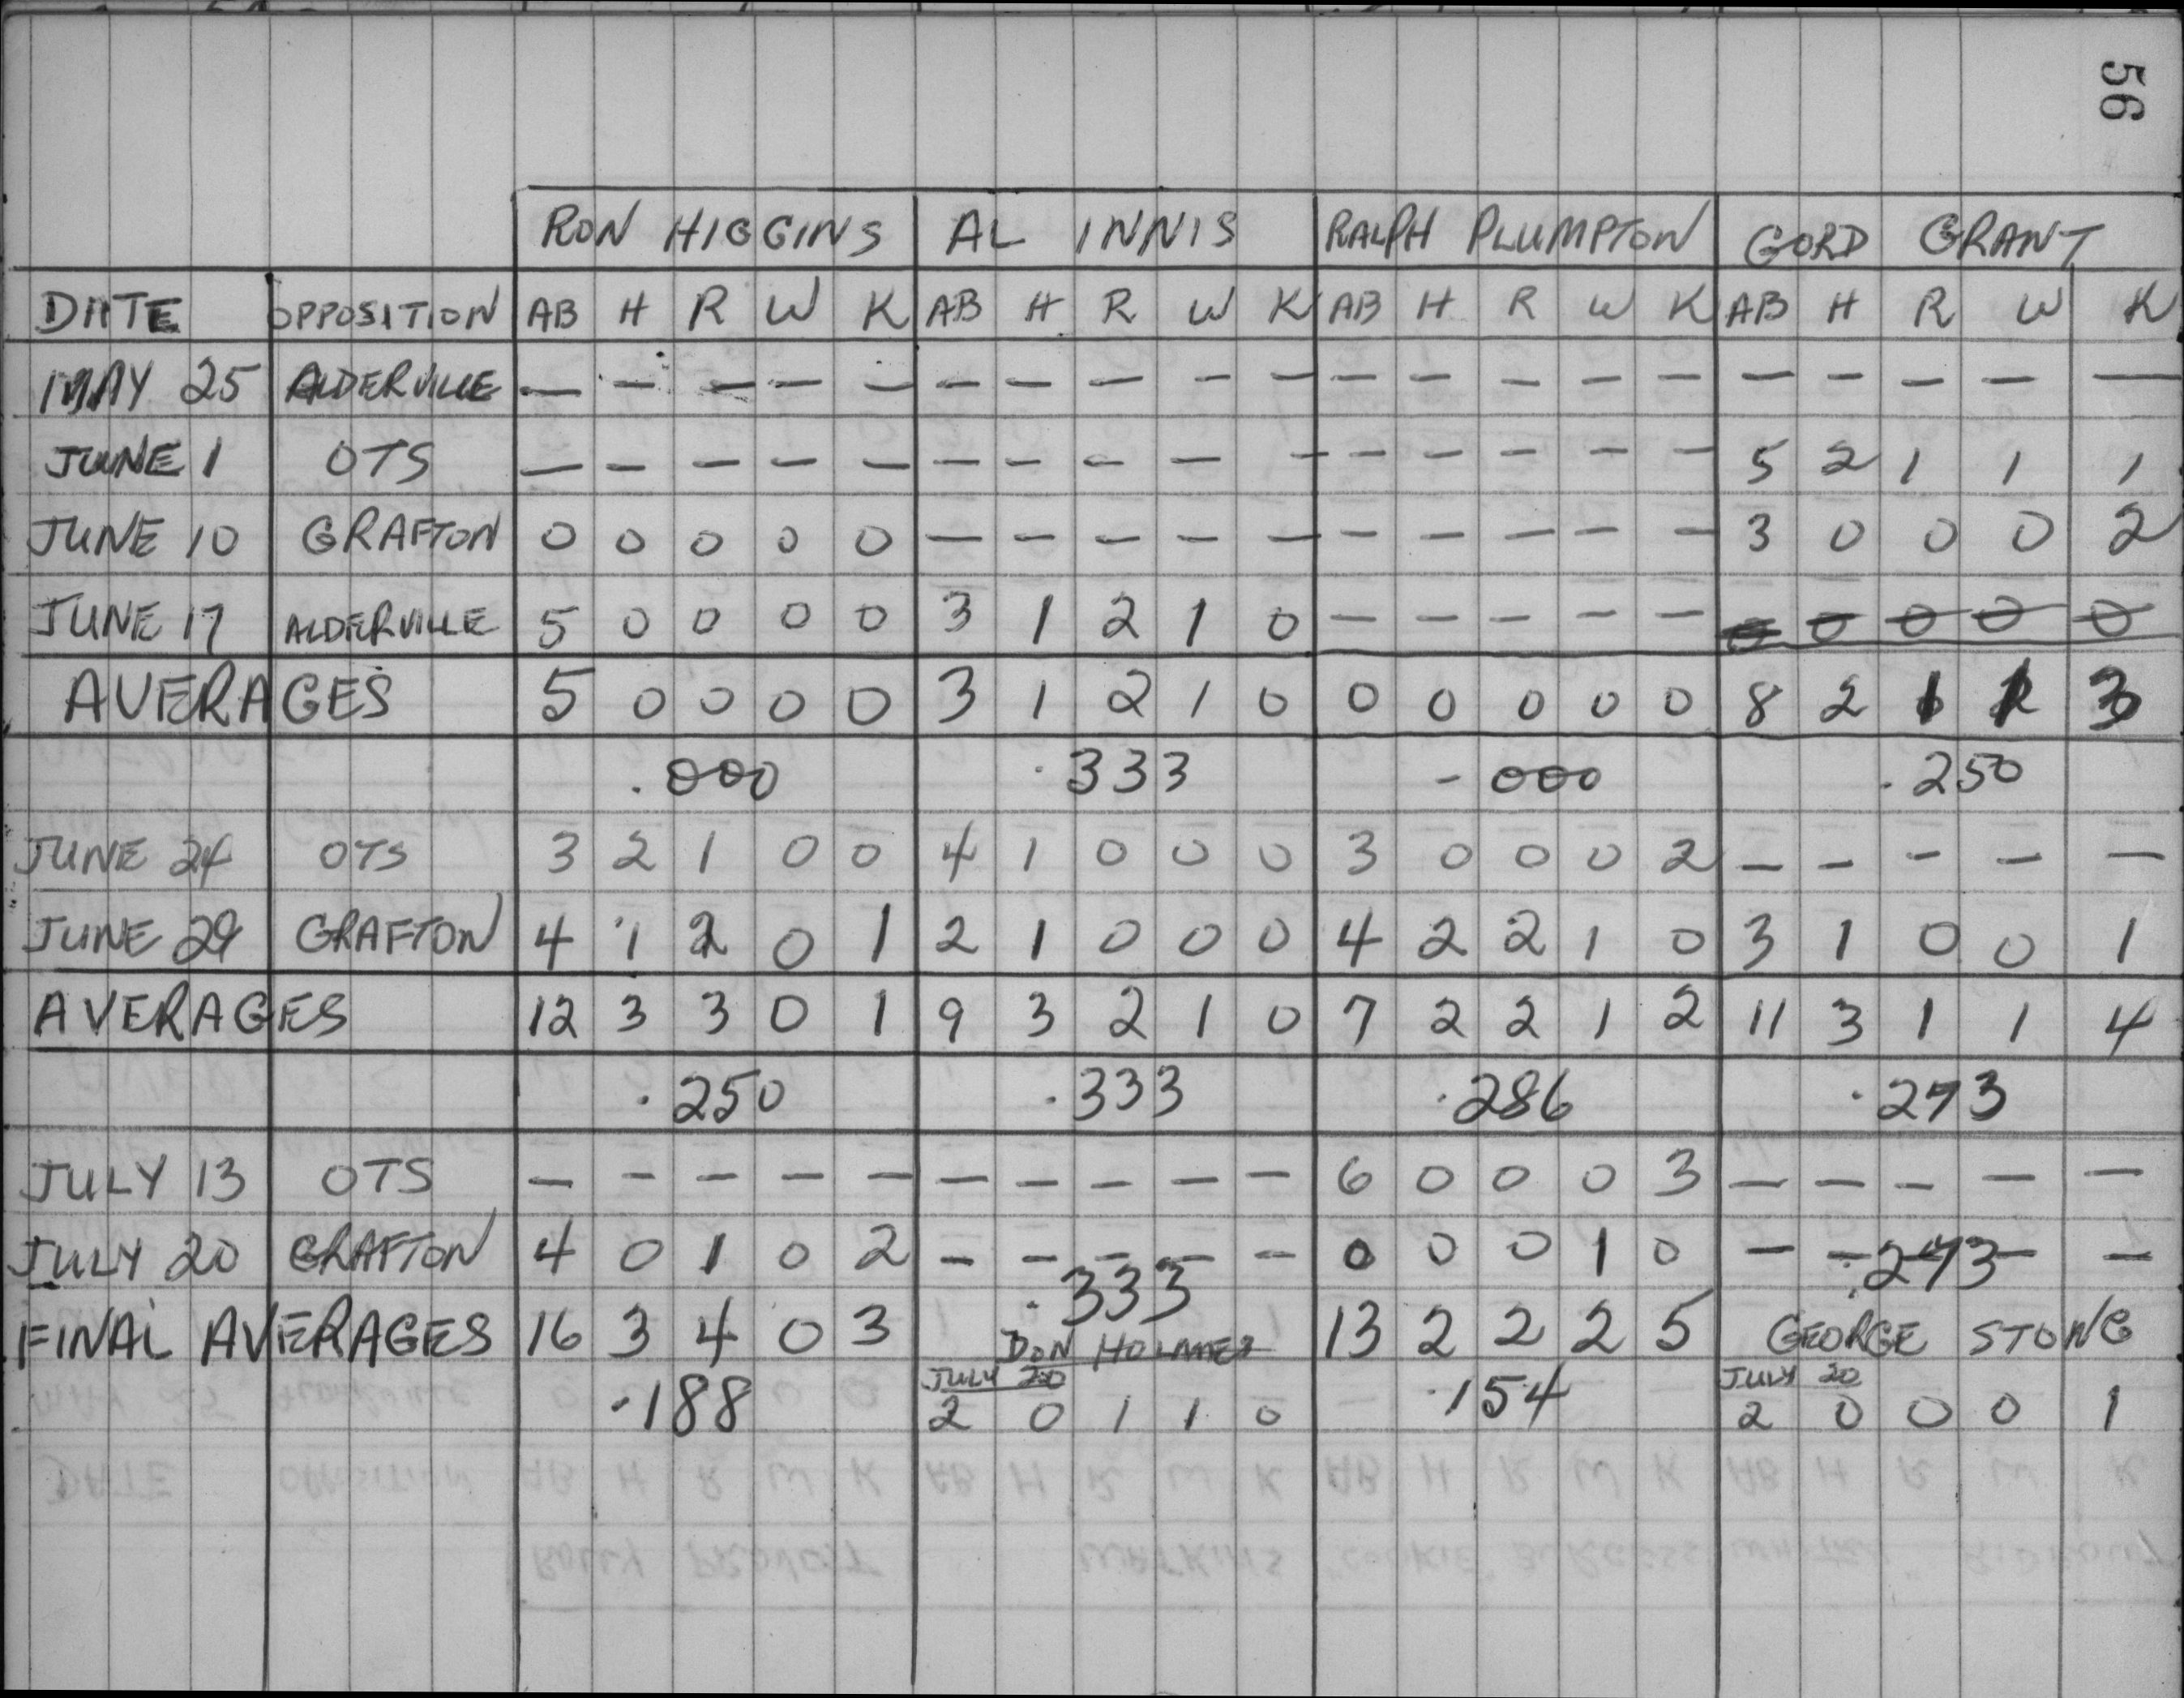 56
RON HIGGINS AL INNIS RALPH PLUMPTON GORD GRANT
DATE OPPOSITION AB H R W K AB H R W K AB H R W K AB H R W K
MAY 25 ALDERVILLE — — — — — — — — — — — — — — — — — — — —
JUNE 1 OTS — — — — — — — — — — — — — — — 5 2 1 1 1
JUNE 10 GRAFTON 0 0 0 0 0 — — — — — — — — — — 3 0 0 0 2
JUNE 17 ALDERVILLE 5 0 0 0 0 3 1 2 1 0 — — — — — 0 0 0 0 0
AVERAGES 5 0 0 0 0 3 1 2 1 0 0 0 0 0 0 8 2 1 1 3
.000 .333 .000 .250
JUNE 24 OTS 3 2 1 0 0 4 1 0 0 0 3 0 0 0 2 — — — — —
JUNE 29 GRAFTON 4 1 2 0 1 2 1 0 0 0 4 2 2 1 0 3 1 0 0 1
AVERAGES 12 3 3 0 1 9 3 2 1 0 7 2 2 1 2 11 3 1 1 4
.250 .333 .286 .273
JULY 13 OTS — — — — — — — — — — 6 0 0 0 3 — — — — —
JULY 20 GRAFTON 4 0 1 0 2 — — — — — 0 0 0 1 0 — — — — —
.333 .273
FINAL AVERAGES 16 3 4 0 3 DON HOLMES 13 2 2 2 5 GEORGE STONE
JULY 20 JULY 20
.188 2 0 1 1 0 .154 2 0 0 0 1